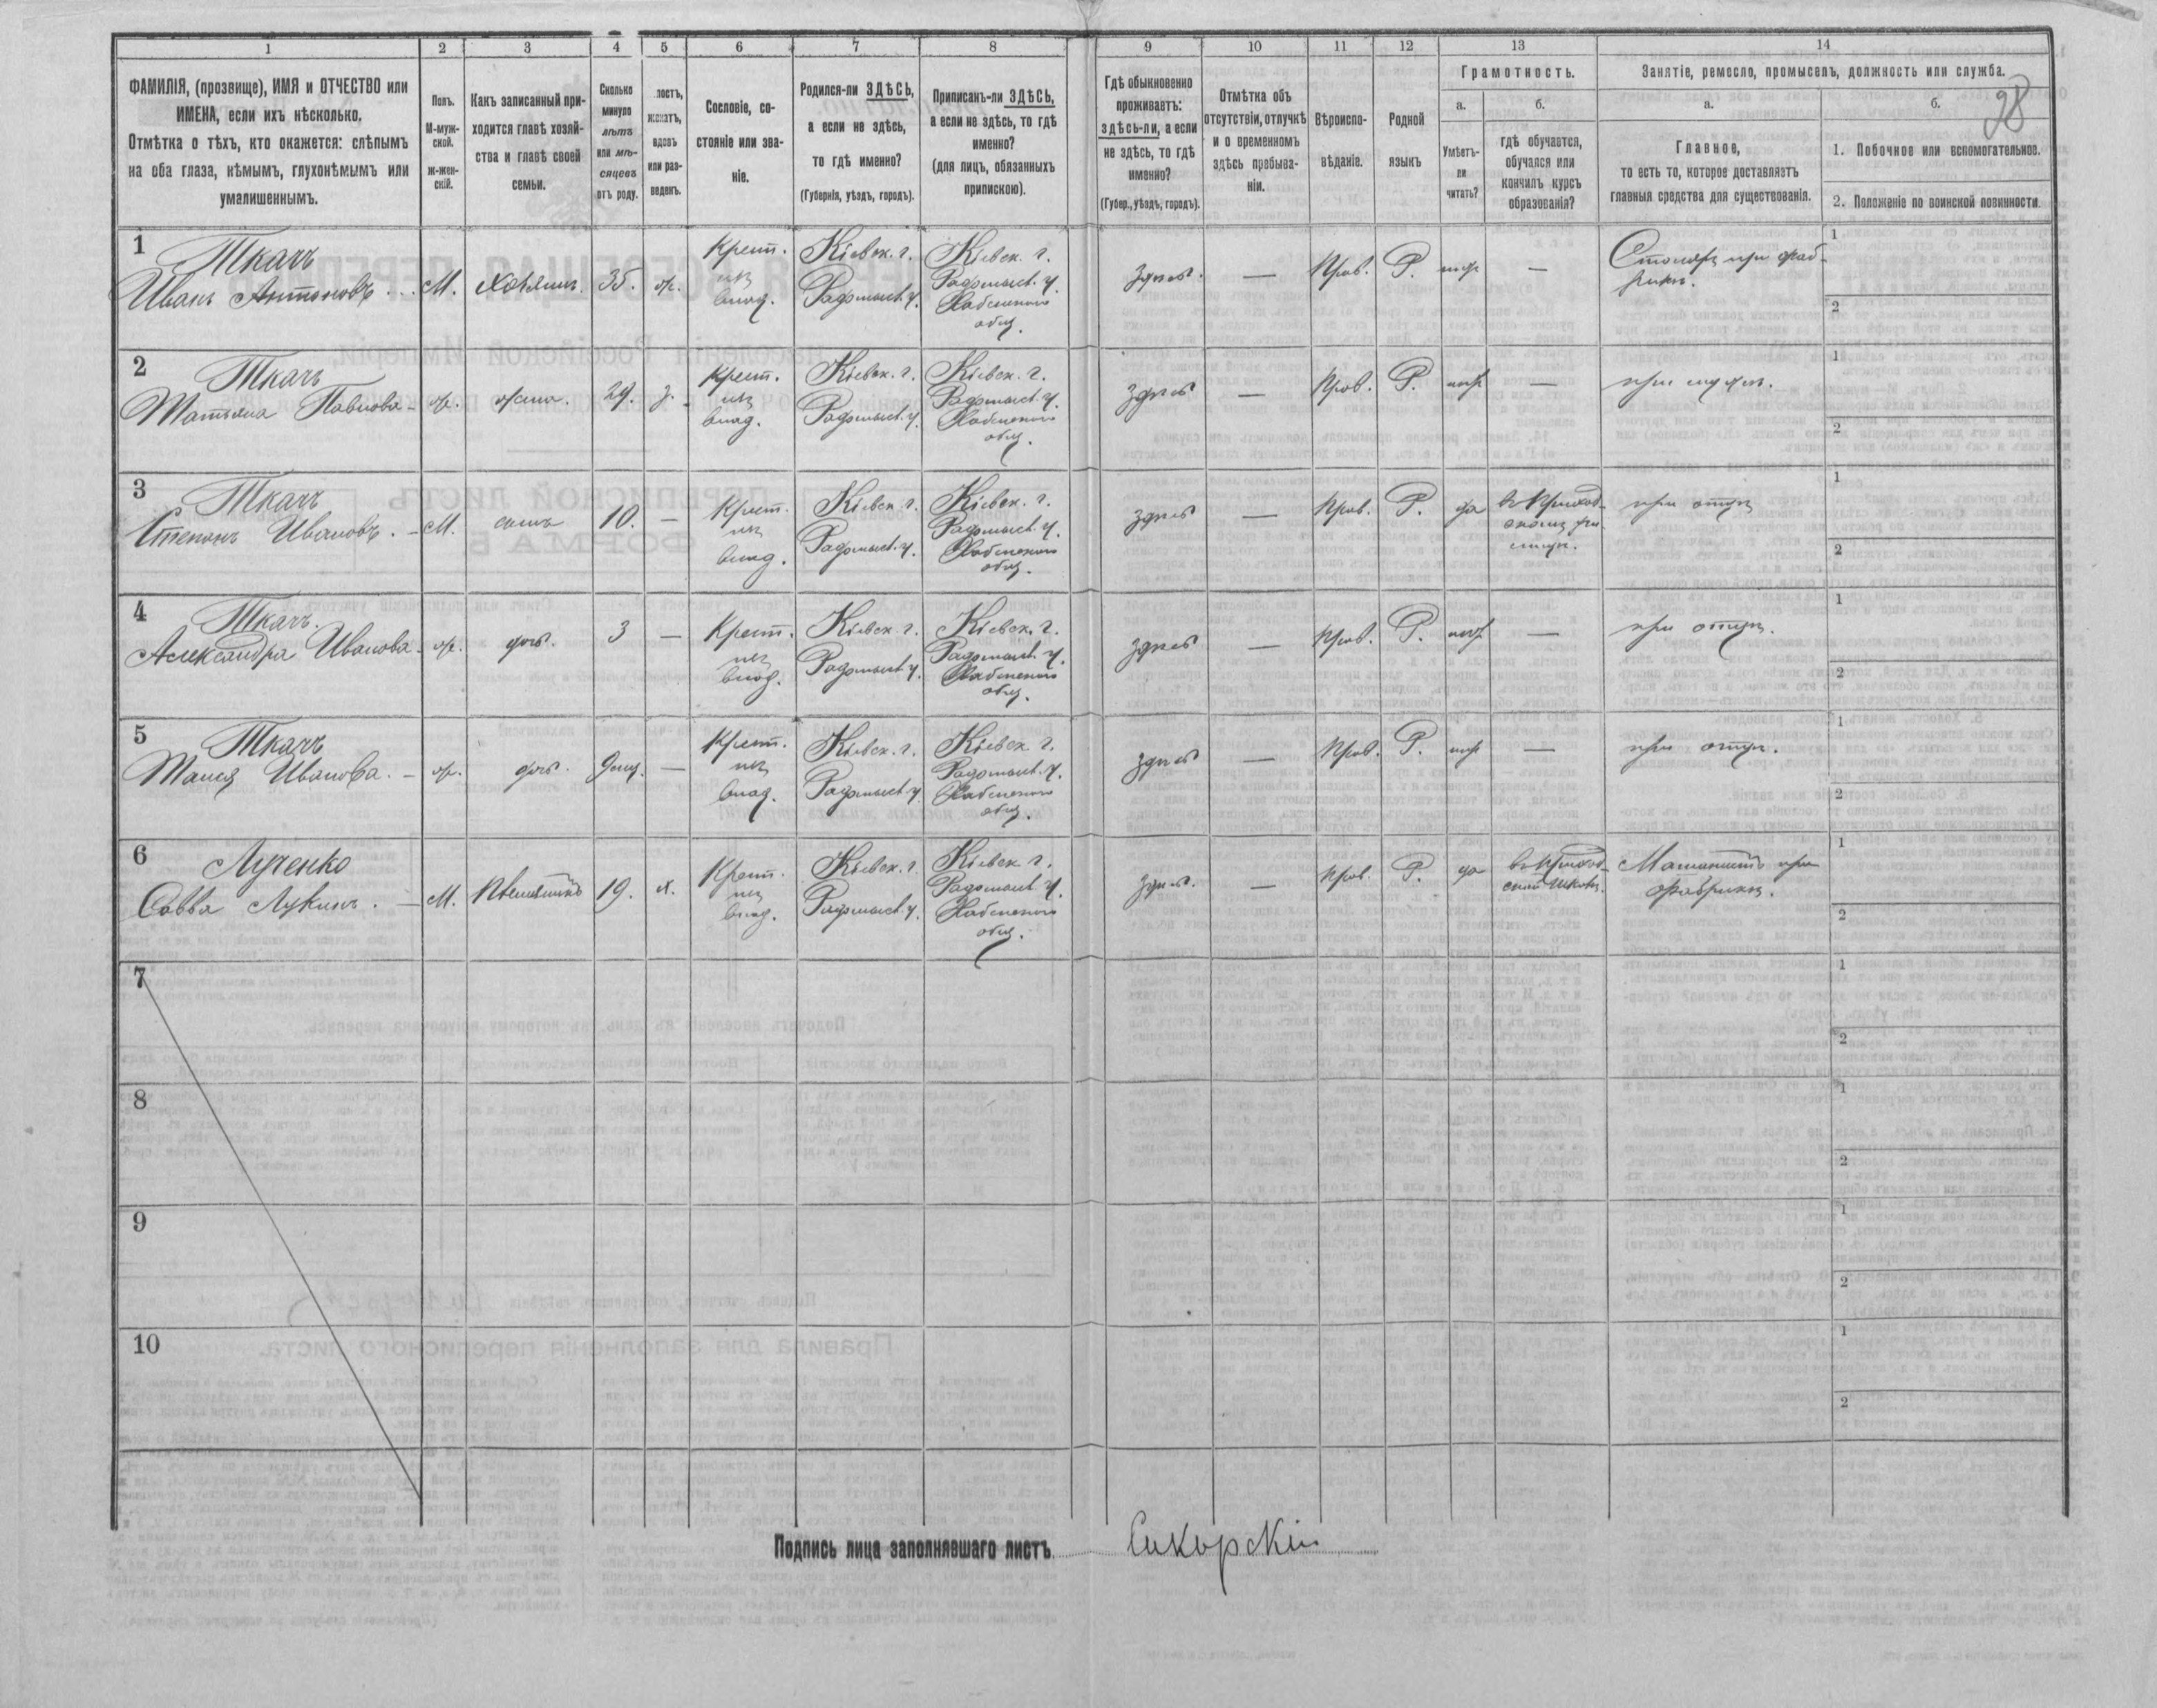 1 2 3 4 5 6 7 8 9 10 11 12 13 14
ФАМИЛІЯ, (прозвище), ИМЯ и ОТЧЕСТВО или
ИМЕНА, если ихъ нѣсколько.
Отмѣтка о тѣхъ, кто окажется: слѣпымъ
на оба глаза, нѣмымъ, глухонѣмымъ или
умалишеннымъ.
Полъ.
М-муж-
ской.
ж-жен-
скій.
Какъ записанный при-
ходится главѣ хозяй-
ства и главѣ своей
семьи.
Сколько
минуло
лѣтъ
или мѣ-
сяцевъ
отъ роду.
лостъ,
женатъ,
вдовъ
или раз-
веденъ.
Сословіе, со-
стояніе или зва-
ніе.
Родился-ли ЗДѢСЬ,
а если не здѣсь,
то гдѣ именно?
(Губернія, уѣздъ, городъ).
Приписанъ-ли ЗДѢСЬ,
а если не здѣсь, то гдѣ
именно?
(для лицъ, обязанныхъ
припискою).
Гдѣ обыкновенно
проживаетъ:
здѣсь-ли, а если
не здѣсь, то гдѣ
именно?
(Губер., уѣздъ, городъ).
Отмѣтка объ
отсутствіи, отлучкѣ
и о временномъ
здѣсь пребыва-
ніи.
Вѣроиспо-
вѣданіе.
Родной
языкъ
Грамотность.
а.
Умѣетъ-
ли
читать?
б.
гдѣ обучается,
обучался или
кончилъ курсъ
образованія?
Занятіе, ремесло, промыселъ, должность или служба.
а.
Главное,
то есть то, которое доставляетъ
главныя средства для существованія.
б.
98
1. Побочное или вспомогательное.
2. Положеніе по воинской повинности.
1
Ткачъ
Иванъ Антоновъ. М. хозяинъ. 35. ж.
Крест.
изъ
влад.
Кіевск. г.
Радомысл. у.
Кіевск. г.
Радомысл. у.
Хабенского
общ.
здѣсь. — Прав. Р. —
Столяръ при фаб-
рикѣ.
1
2
2
Ткачъ
Татьяна Павлова - ж. жена. 29. з.
Крест.
изъ
влад.
Кіевск. г.
Радомысл. у.
Кіевск. г.
Радомысл. у.
Хабенского
общ.
здѣсь — Прав. Р. —
при мужѣ.
1
2
3
Ткачъ
Степанъ Ивановъ. - М. сынъ 10. —
Крест.
изъ
влад.
Кіевск. г.
Радомысл. у.
Кіевск. г.
Радомысл. у.
Хабенского
общ.
здѣсь — Прав. Р. да
при отцѣ
1
2
4
Ткачъ.
Александра Иванова - ж. дочь. 3 —
Крест.
изъ
влад.
Кіевск. г.
Радомысл. у.
Кіевск. г.
Радомысл. у.
Хабенского
общ.
здѣсь — Прав. Р. —
при отцѣ.
1
2
5
Ткачъ
Таися Иванова. - ж. дочь. —
Крест.
изъ
влад.
Кіевск. г.
Радомысл. у.
Кіевск г.
Радомысл. у.
Хабенского
общ.
здѣсь — Прав. Р. —
при отцѣ.
1
2
6
Лученко
Савва Лукинъ. — М. 19. х.
Крест.
изъ
влад.
Кіевск. г.
Радомысл. у.
Кіевск г.
Радомысл. у.
Хабенского
общ.
здѣсь. — Прав. Р. да
Машинистъ при
фабрикѣ.
1
2
7
1
2
8
1
2
9
1
2
10
1
2
Подпись лица заполнявшаго листъ Сикорскій